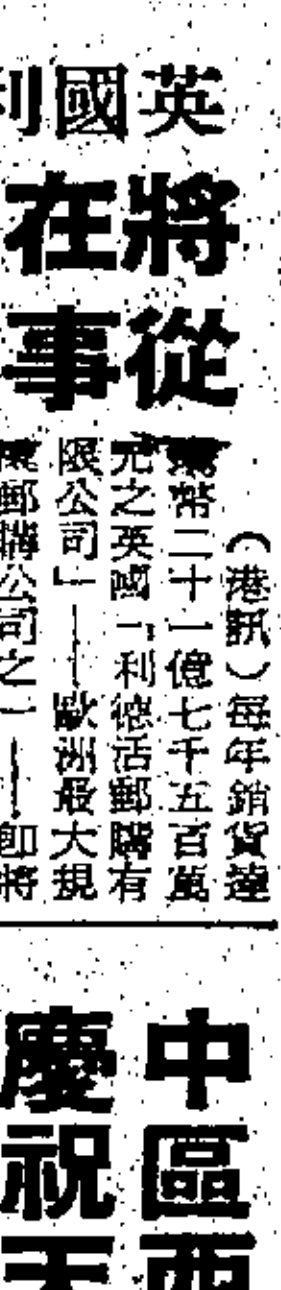 英國利
將在
從事
（港訊）每年銷貨達
幣二十一億七千五百萬
元之英國「利德活郵購有
限公司」——歐洲最大規
郵購公司之一——即將
中區西
慶祝天